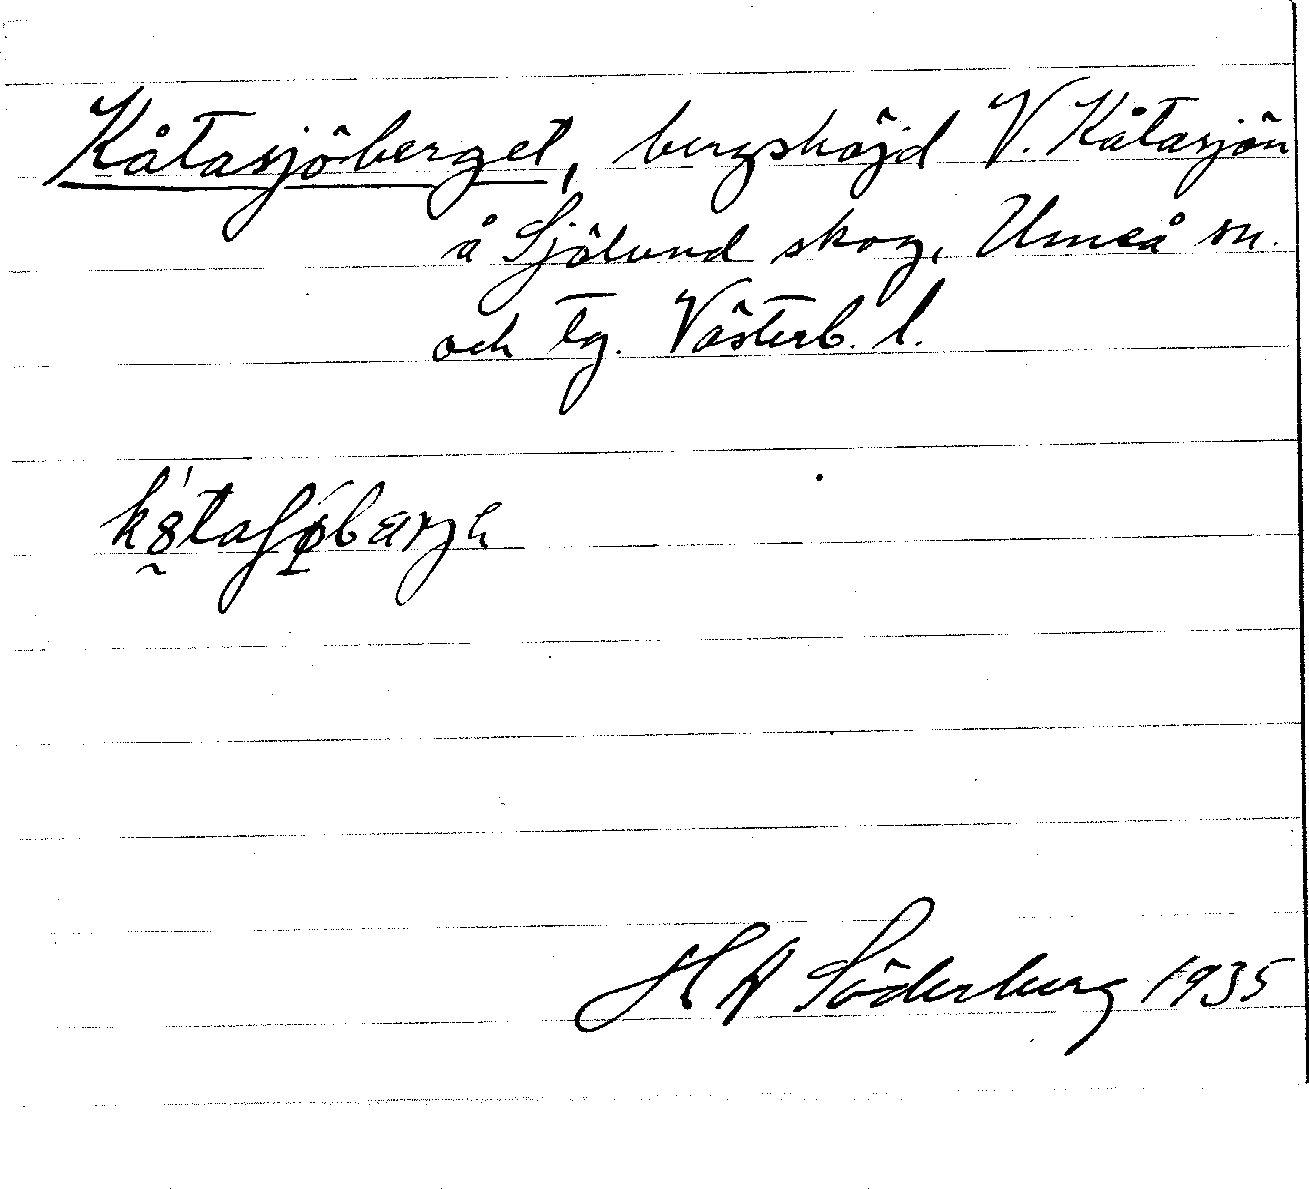 Kåtasjöberget, bergshöjd V. Kåtasjön
å Sjölund skog, Umeå sn.
och tg. Västerb. l.
H A Söderberg 1935